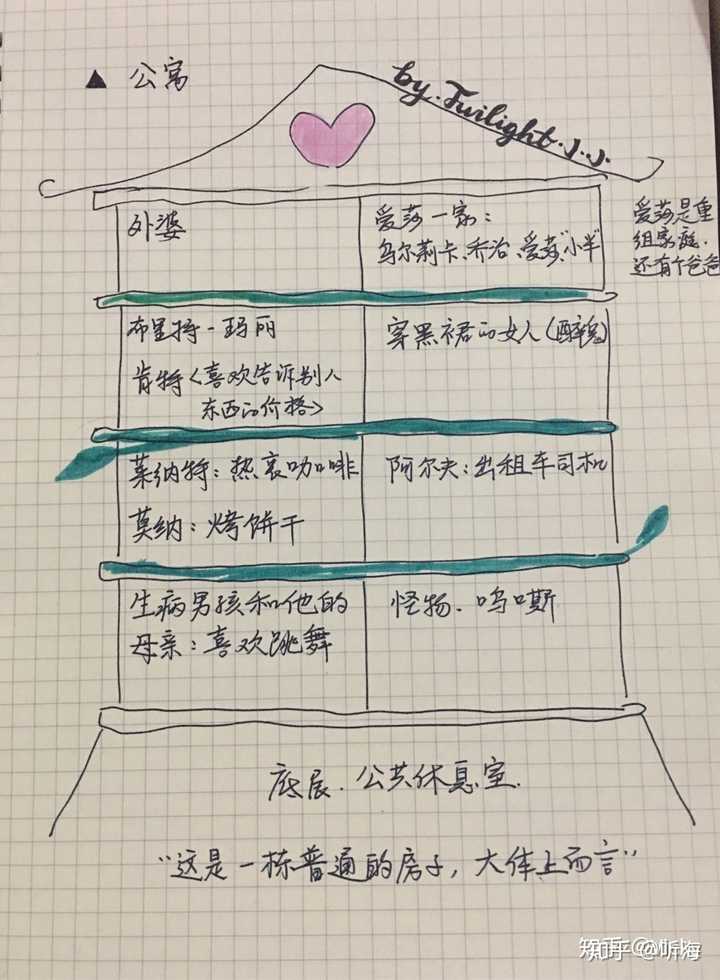 ▲ 公寓
by. Twilight.
外婆
爱莎一家:
乌尔莉卡、乔治、爱莎、"小半"
爱莎是重
组家庭.
还有个爸爸
布里特-玛丽
肯特<喜欢告诉别人
东西的价格>
穿黑裙的女人(醉鬼)
莱纳特:热衷咖啡
莫纳:烤饼干
阿尔夫:出租车司机
生病男孩和他的
母亲:喜欢跳舞
怪物.呜呣斯
底层.公共休息室.
"这是一栋普通的房子,大体上而言"
知乎 @听海